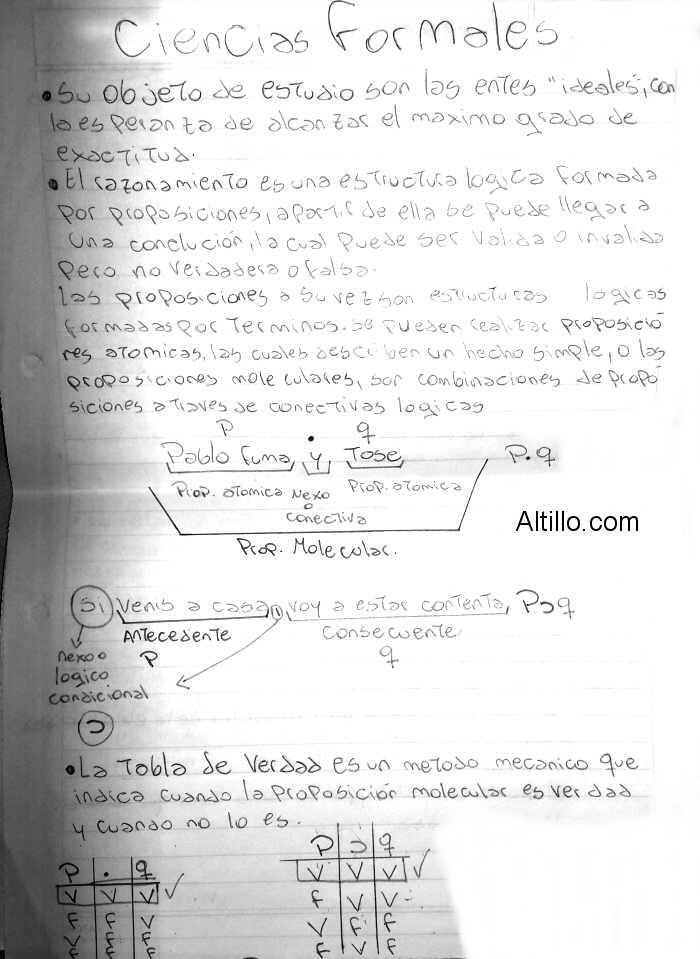 Ciencias Formales
• Su objeto de estudio son los entes "ideales", con
la esperanza de alcanzar el maximo grado de
exactitud.
• El razonamiento es una estructura logica formada
por proposiciones, a partir de ella se puede llegar a
una conclución, la cual puede ser valida o invalida
pero no verdadera o falsa.
Las proposiciones a su vez son estructuras logicas
formadas por terminos. Se pueden realizar proposicio
nes atomicas, las cuales describen un hecho simple, o las
proposiciones moleculares, son combinaciones de propo
siciones a traves de conectivas logicas
P . q
Pablo fuma y Tose P.q
Prop. atomica Nexo Prop. atomica
o
conectiva
Altillo.com
Prop. Molecular.
Si Venis a casa, voy a estar contenta, P⊃q
Antecedente Consecuente
nexo o P q
logico
condicional
⊃
• La Tabla de Verdad es un metodo mecanico que
indica cuando la proposición molecular es verdad
y cuando no lo es.
P ⊃ q
P . q V V V ✓
V V V ✓ F V V
F F V V F F
V F F F V F
F F F